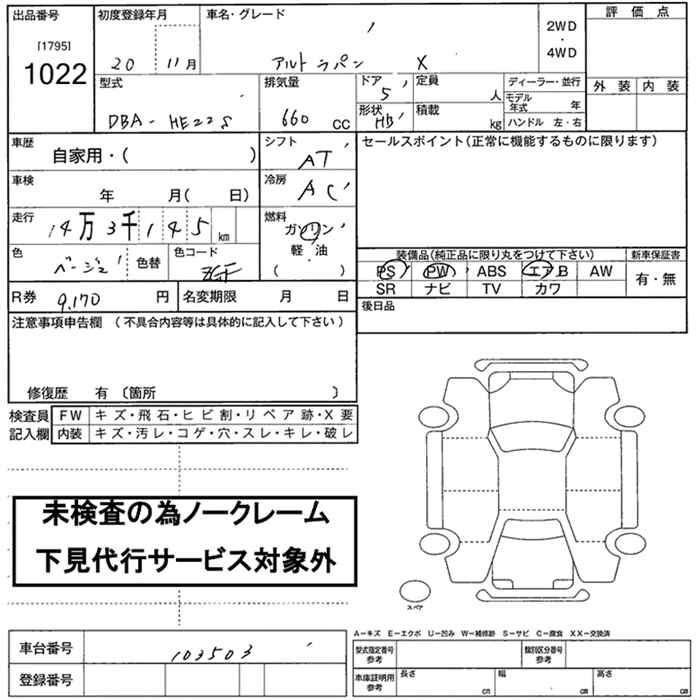 出品番号 初度登録年月 車名・グレード 評価点
[1795]
1022
20 11月 アルト ラパン X
2WD
・
4WD
外装 内装
型式 排気量 ドア 5 定員 人 ディーラー・並行
モデル年式 年
DBA- HE22S 660 CC 形状 HB 積載 kg ハンドル 左・右
車歴 シフト セールスポイント(正常に機能するものに限ります)
自家用・( ) AT
車検 冷房
年 月( 日) AC
走行 燃料
14万3千145 km ガソリン
軽・油
( )
色 色替 色コード
ベージュ
装備品(純正品に限り丸をつけて下さい) 新車保証書
PS PW ABS エアB AW 有・無
SR ナビ TV カワ
R券 9,170 円 名変期限 月 日 後日品
注意事項申告欄 (不具合内容等は具体的に記入して下さい)
修復歴 有 〔箇所 〕
検査員 FW キズ・飛石・ヒビ割・リペア跡・X要
記入欄 内装 キズ・汚レ・コゲ・穴・スレ・キレ・破レ
未検査の為ノークレーム
下見代行サービス対象外
スペア
A-キズ E-エクボ U-凹み W-補修跡 S-サビ C-腐食 XX-交換済
車台番号 103503 型式指定番号 参考 類別区分番号 参考
登録番号 車庫証明用 参考 長さ cm 幅 cm 高さ cm